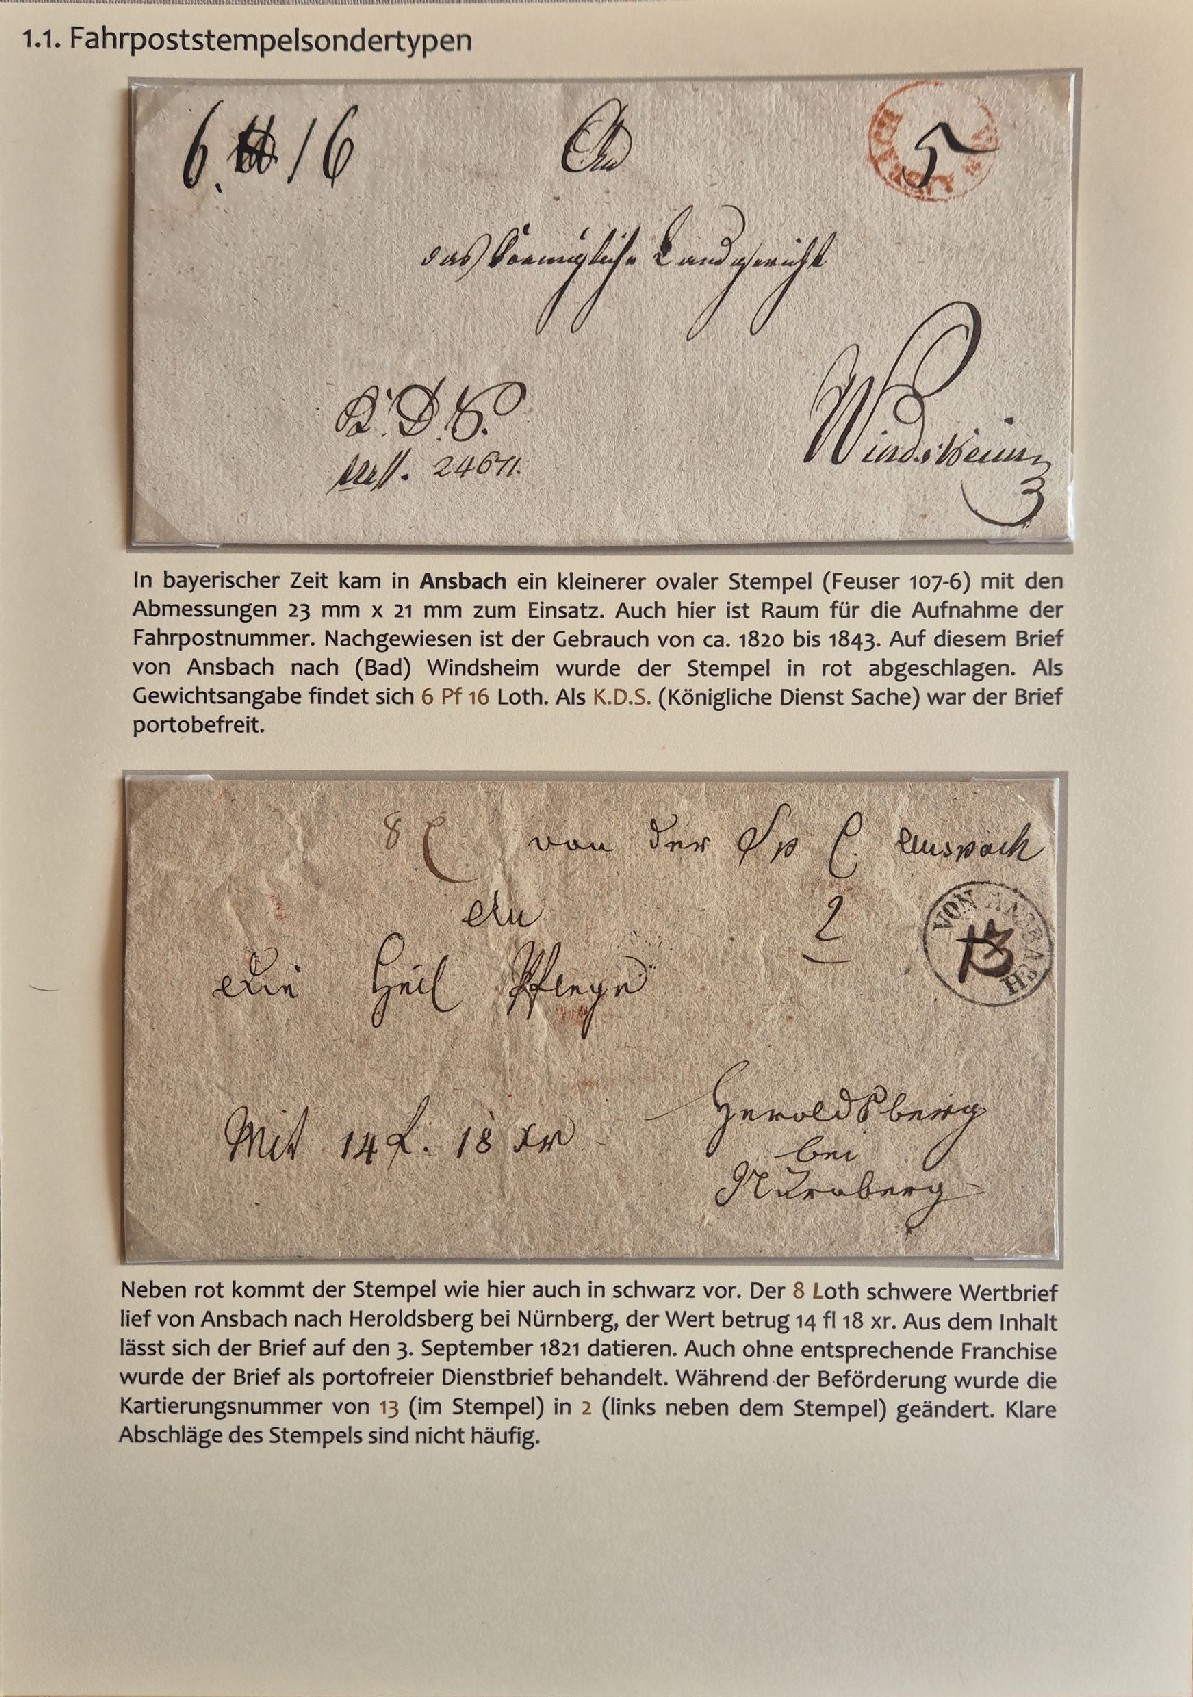 1.1. Fahrpoststempelsondertypen
6. ℔ 16
An
5
das Königliche Landgericht
Windsheim
K. D. S.
24671.
3
In bayerischer Zeit kam in Ansbach ein kleinerer ovaler Stempel (Feuser 107-6) mit den
Abmessungen 23 mm x 21 mm zum Einsatz. Auch hier ist Raum für die Aufnahme der
Fahrpostnummer. Nachgewiesen ist der Gebrauch von ca. 1820 bis 1843. Auf diesem Brief
von Ansbach nach (Bad) Windsheim wurde der Stempel in rot abgeschlagen. Als
Gewichtsangabe findet sich 6 Pf 16 Loth. Als K.D.S. (Königliche Dienst Sache) war der Brief
portobefreit.
8 L von der Sp C Anspach
An
2
VON ANSBACH
13
die Heil Pflege
Heroldsberg
Mit 14 f. 18 xr
bei
Nürnberg
Neben rot kommt der Stempel wie hier auch in schwarz vor. Der 8 Loth schwere Wertbrief
lief von Ansbach nach Heroldsberg bei Nürnberg, der Wert betrug 14 fl 18 xr. Aus dem Inhalt
lässt sich der Brief auf den 3. September 1821 datieren. Auch ohne entsprechende Franchise
wurde der Brief als portofreier Dienstbrief behandelt. Während der Beförderung wurde die
Kartierungsnummer von 13 (im Stempel) in 2 (links neben dem Stempel) geändert. Klare
Abschläge des Stempels sind nicht häufig.